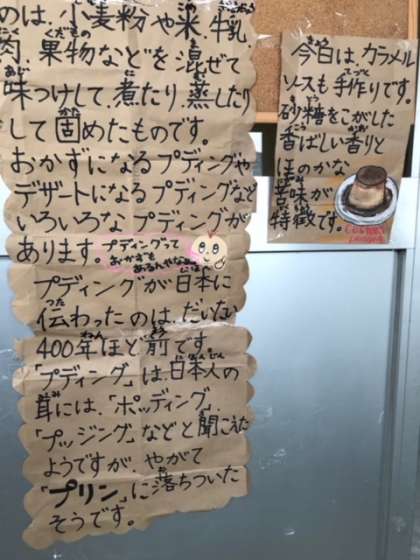 のは、小麦粉や米、牛乳、
肉、果物などを混ぜて
味つけして、煮たり、蒸したり
して固めたものです。
おかずになるプディングや
デザートになるプディングなど
いろいろなプディングが
あります。
プディングって
おかずも
あるんやなぁ
プディングが日本に
伝わったのは、だいたい
400年ほど前です。
「プディング」は、日本人の
耳には、「ポッディング」、
「プッジング」などと聞こえた
ようですが、やがて
「プリン」に落ちついた
そうです。
今日は、カラメル
ソースも手作りです。
砂糖をこがした
香ばしい香りと
ほのかな
苦味が
特徴です。